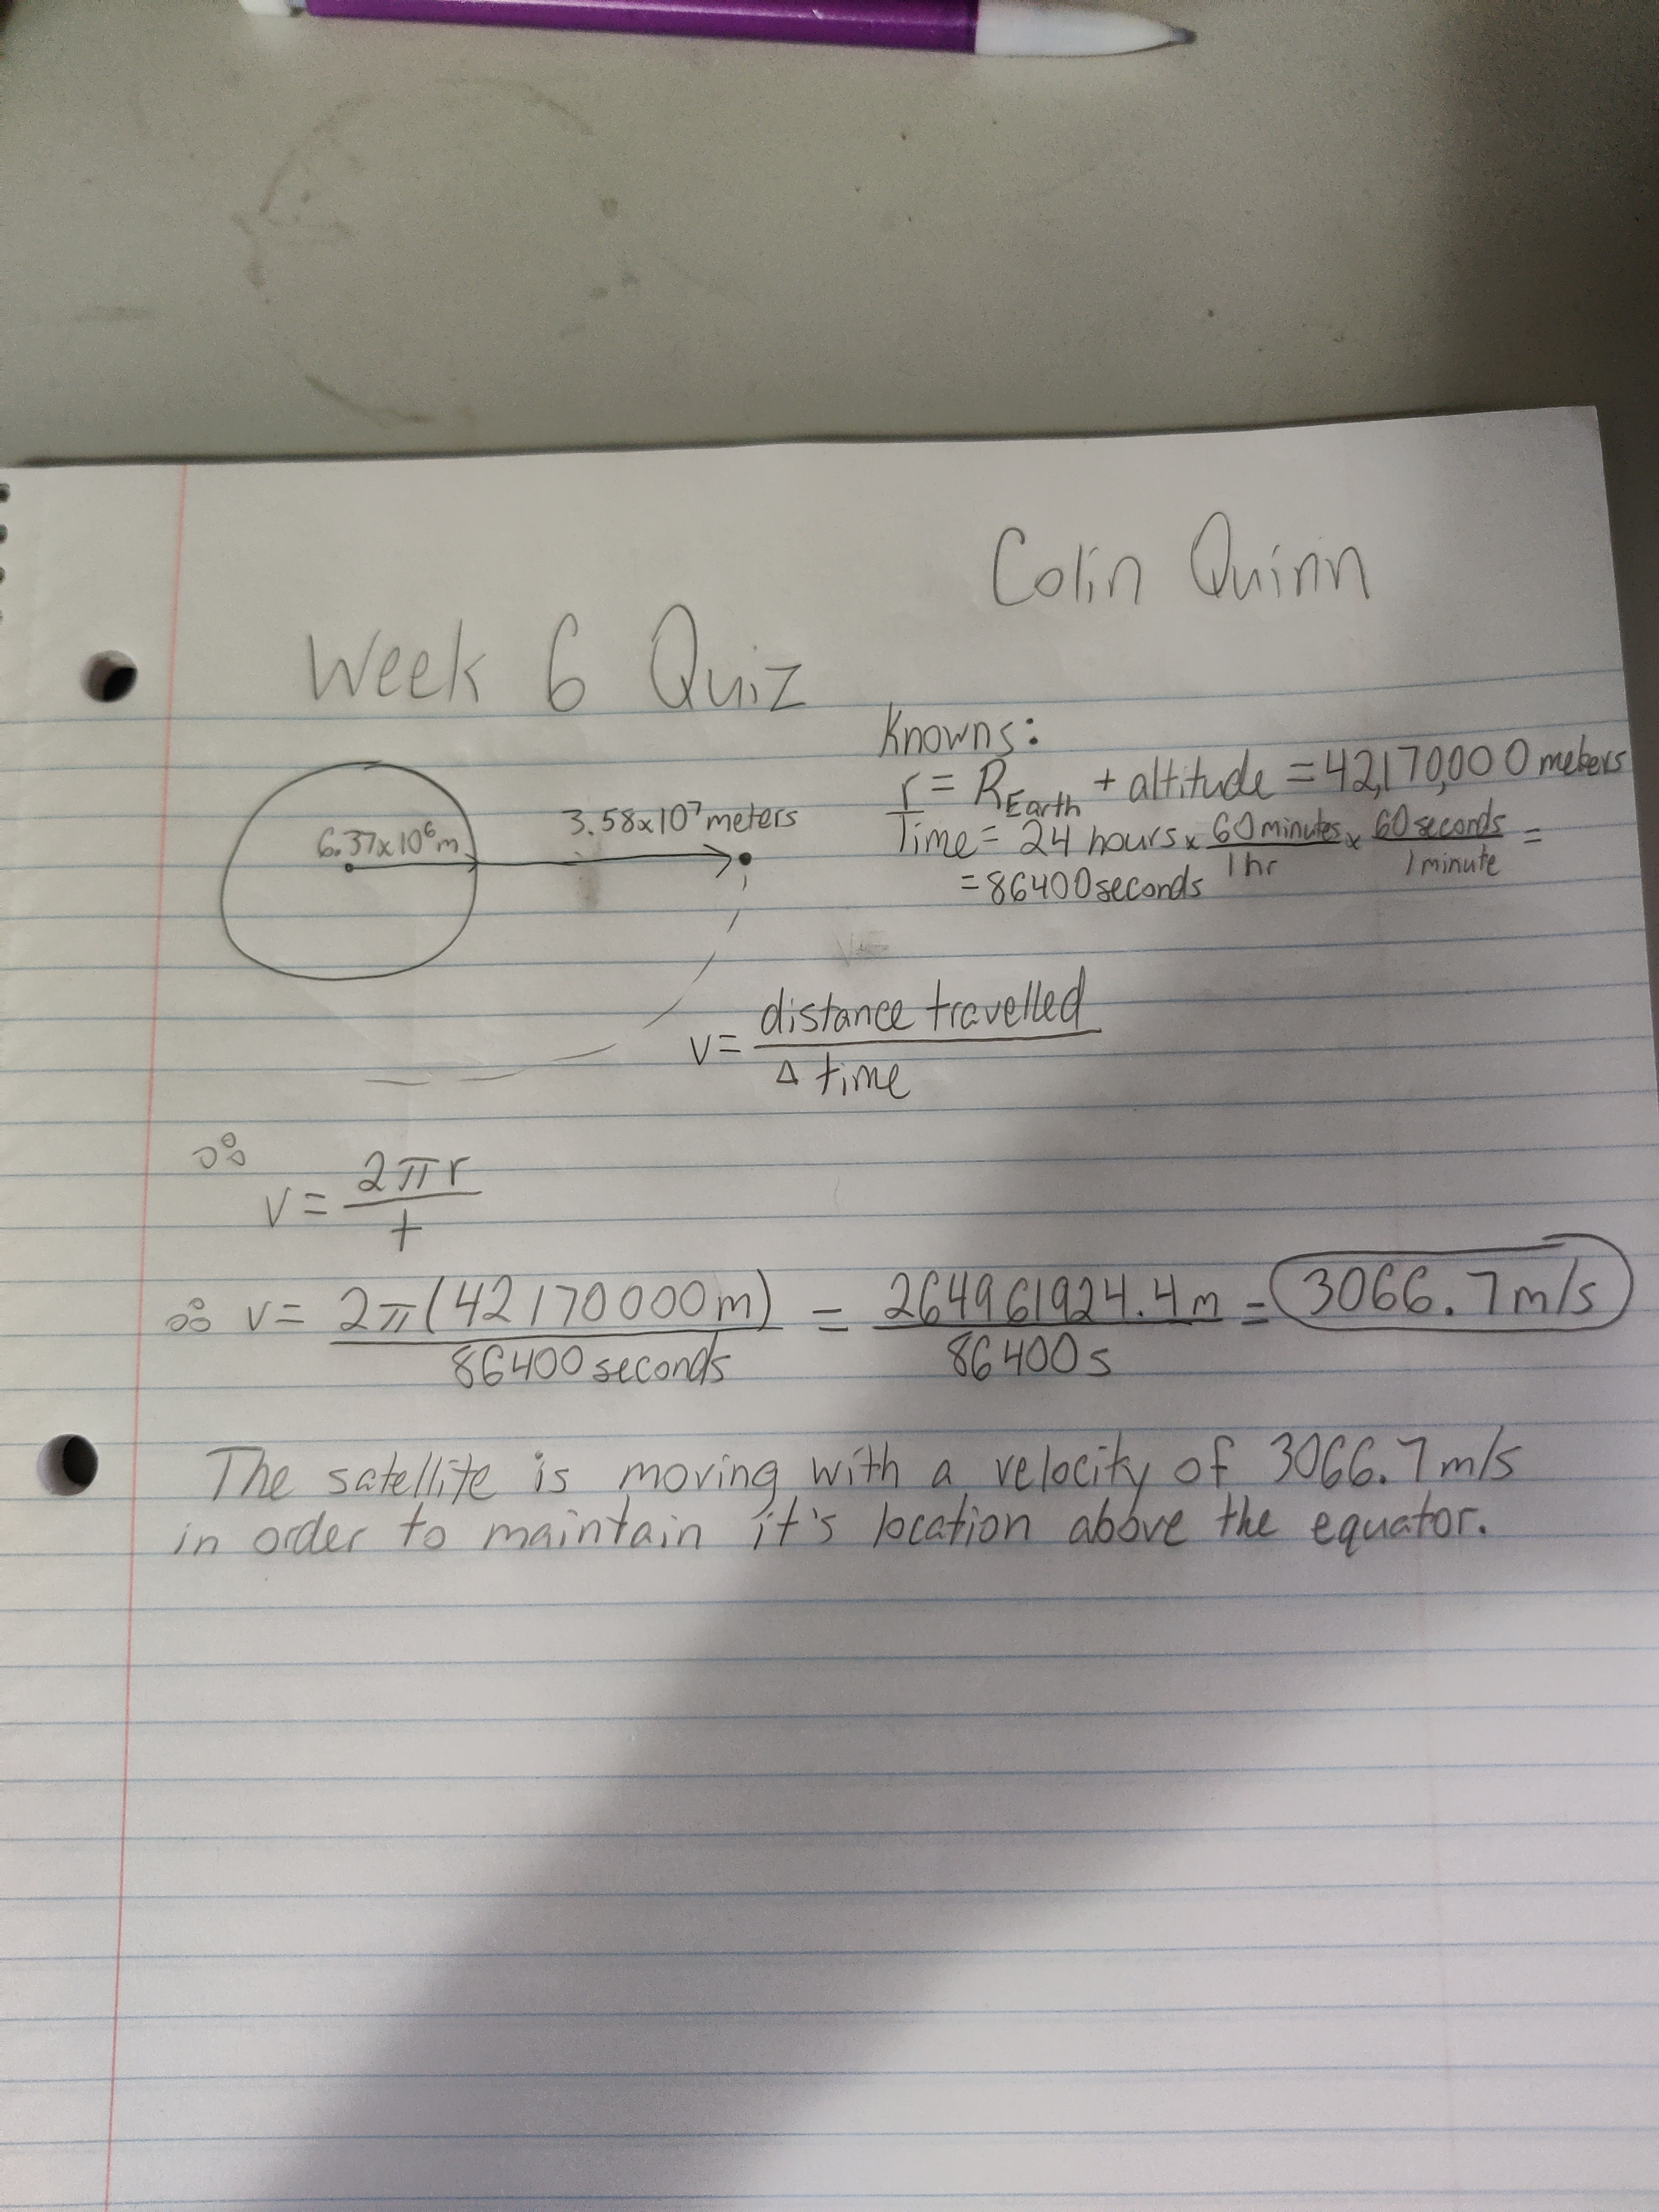 Colin Quinn
Week 6 Quiz
Knowns:
r = R_Earth + altitude = 42,170,000 meters
Time = 24 hours × 60 minutes/1 hr × 60 seconds/1 minute =
= 86400 seconds
6.37x10⁶ m
3.58x10⁷ meters
v = distance travelled/Δ time
∴
v = 2πr/t
∴ v = 2π(42170000m)/86400 seconds = 264961924.4 m/86400 s = 3066.7 m/s
The satellite is moving with a velocity of 3066.7 m/s
in order to maintain it's location above the equator.